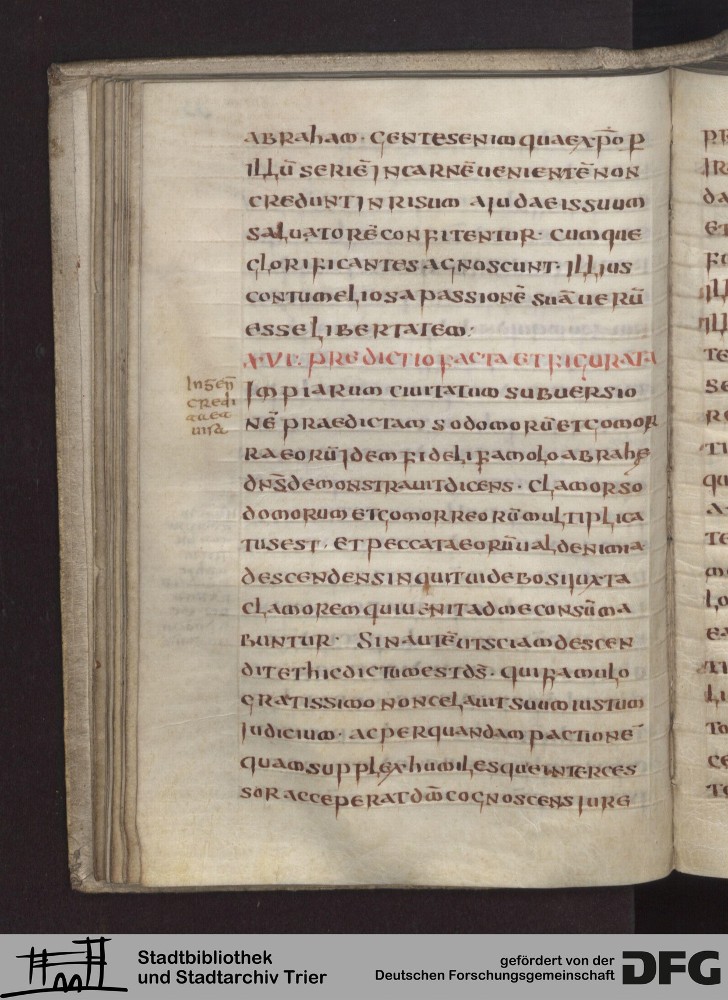 abraham · gentes enim quae xp̄o p
illū seriē in carnē uenientē non
credunt in risum a iudaeis suum
saluatorē confitentur · cumque
glorificantes agnoscunt · illius
contumeliosa passionē suā uerū
esse libertatem :
XVI. predictio facta et figurata
In gen̄
credi
Impiarum ciuitatum subuersio
nē praedictam sodomorū et gomor
raeorū idem fideli famolo abrahe
dn̄s demonstrauit dicens · clamor so
domorum et gomorreorū multiplica
tus est · et peccata eorū ualde nimia
descendens inquit uidebo si iuxta
clamorem qui uenit ad me consūma
buntur · Sin autē ut sciam descen
dit et hic dictum est d̄s · qui famulo
gratissimo non celauit suum iustum
iudicium · ac per quandam pactionē
quam supplex humilesque interces
sor acceperat dōm cognoscens iure
Stadtbibliothek
und Stadtarchiv Trier
gefördert von der
Deutschen Forschungsgemeinschaft
DFG